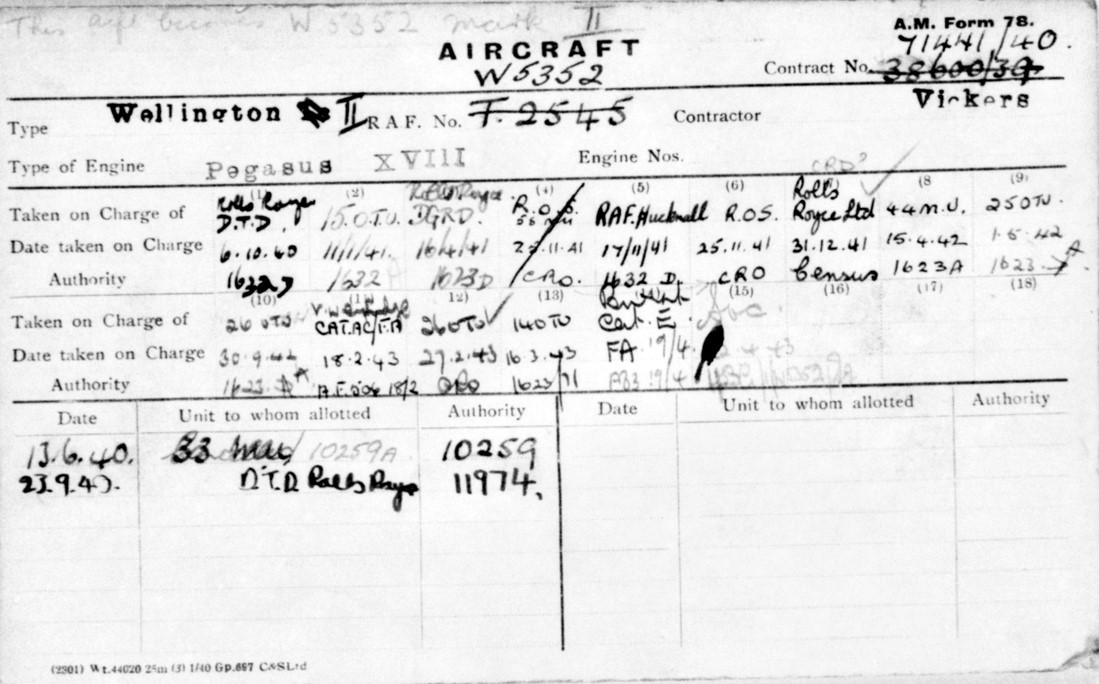 This a/c becomes W5352 mark II
A.M. Form 78.
AIRCRAFT
71441/40.
W5352
Contract No. 38600/39
Wellington II
Vickers
Type R.A.F. No. T.2545 Contractor
Type of Engine Pegasus XVIII Engine Nos.
CRD?
(1) (2) (4) (5) (6) (8 (9)
Rolls Royce Rolls Royce Rolls
Taken on Charge of D.T.D. 15.O.T.U. DGRD. R.O.S. RAF. Hucknall R.O.S. Royce Ltd 44 M.U. 25 OTU
Date taken on Charge 6.10.40 11/1/41. 16/4/41 25.11.41 17/11/41 25.11.41 31.12.41 15.4.42 1.5.42
Authority 1632D 1632 1623D CRO. 1632 D. CRO Census 1623A 1623
(10) 12) (13) (15) (16) (17) (18)
Taken on Charge of 26 OTU CAT.AC/F.A 26 OTU 14 OTU Cat. E, Soc
Date taken on Charge 30.9.42 18.2.43 27.2.43 16.3.43 FA 19/4 .4.43
Authority 1623 A 18/2 CRO 1623 19/4
Date Unit to whom allotted Authority Date Unit to whom allotted Authority
13.6.40. 33 10259A 10259
23.9.40. D.T.D Rolls Royce 11974.
(2301) Wt.44020 25m (3) 1/40 Gp.697 C&S Ltd